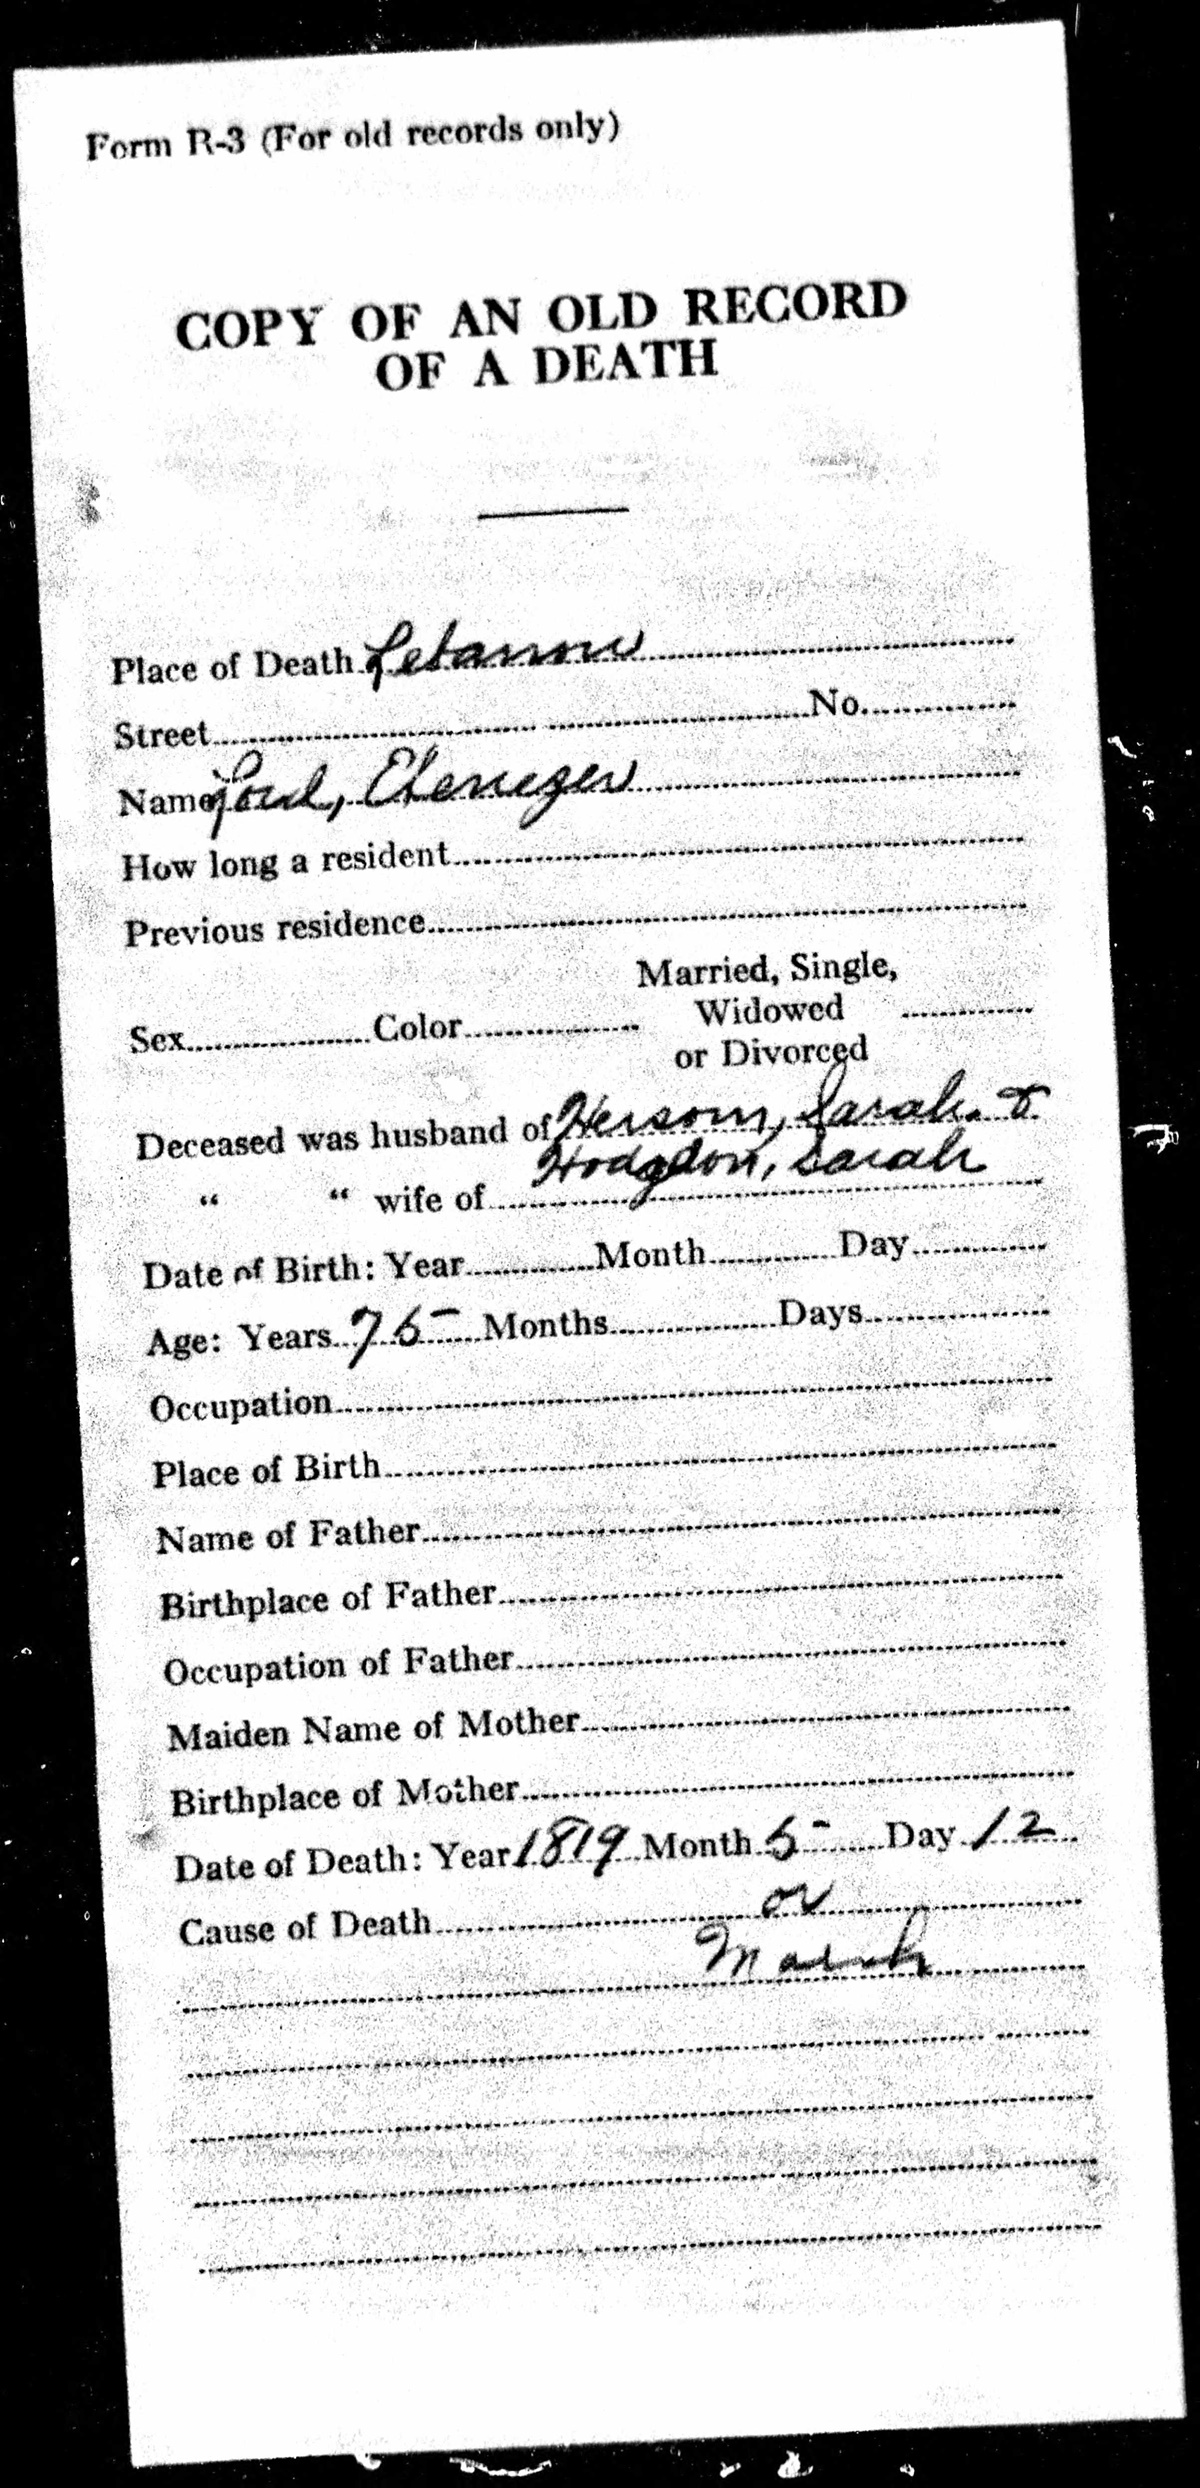 Form R-3 (For old records only)
COPY OF AN OLD RECORD
OF A DEATH
Place of Death Lebanon
Street No.
Name Lord, Ebenezer
How long a resident
Previous residence
Married, Single,
Sex Color Widowed
or Divorced
Deceased was husband of Hersom, Sarah. &
Hodgdon, Sarah
“ “ wife of
Date of Birth: Year Month Day
Age: Years 75 Months Days
Occupation
Place of Birth
Name of Father
Birthplace of Father
Occupation of Father
Maiden Name of Mother
Birthplace of Mother
Date of Death: Year 1819 Month 5 Day 12
Cause of Death or
March